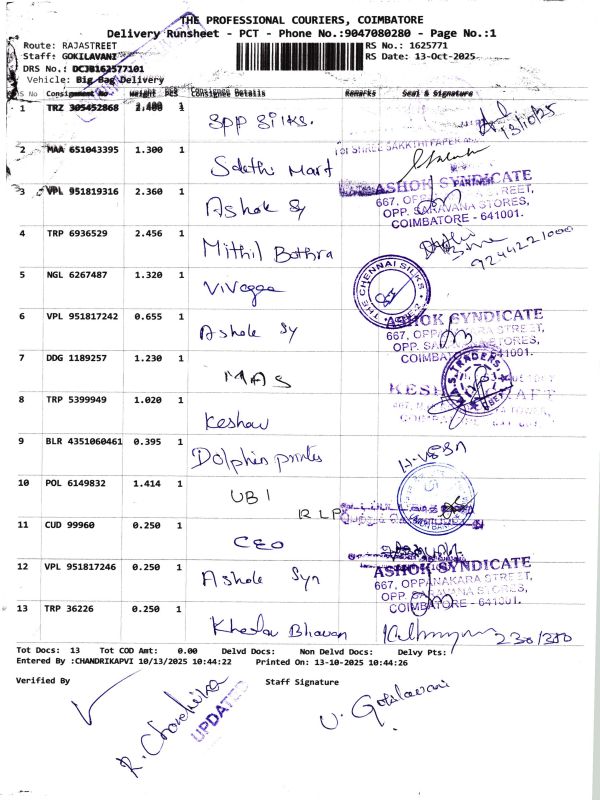 THE PROFESSIONAL COURIERS, COIMBATORE
Delivery Runsheet - PCT - Phone No.:9047080280 - Page No.:1
Route: RAJASTREET
RS No.: 1625771
Staff: GOKILAVANI
RS Date: 13-Oct-2025
DRS No.: DCJB162577101
Vehicle: Big Bag Delivery
S No Consignment No Weight PCS Consignee Details Remarks Seal & Signature
1 TRZ 305452868 2.480 1 Spp Silks. 13/10/25
2 MAA 651043395 1.300 1 Sakthi Mart
For SHREE SAKKTHI PAPER
PARTNER
3 VPL 951819316 2.360 1 Ashok Sy
ASHOK SYNDICATE
667, OPPANAKARA STREET,
OPP. SARAVANA STORES,
COIMBATORE - 641001.
4 TRP 6936529 2.456 1 Mithil Bothra
9244221000
5 NGL 6267487 1.320 1 Vivagaa
THE CHENNAI SILKS
6 VPL 951817242 0.655 1 Ashok Sy
ASHOK SYNDICATE
667, OPPANAKARA STREET,
OPP. SARAVANA STORES,
COIMBATORE - 641001.
7 DDG 1189257 1.230 1 MAS
M.A.S. TRADERS
8 TRP 5399949 1.020 1 Keshav
9 BLR 4351060461 0.395 1 Dolphin printes
10 POL 6149832 1.414 1 UBI
RLP
11 CUD 99960 0.250 1 CEO
12 VPL 951817246 0.250 1 Ashok Syn
ASHOK SYNDICATE
667, OPPANAKARA STREET,
OPP. SARAVANA STORES,
COIMBATORE - 641001.
13 TRP 36226 0.250 1 Kheslav Bhavan
Tot Docs: 13 Tot COD Amt: 0.00 Delvd Docs: Non Delvd Docs: Delvy Pts:
Entered By :CHANDRIKAPVI 10/13/2025 10:44:22 Printed On: 13-10-2025 10:44:26
Verified By Staff Signature
R. Chandrika
UPDATED
V. Gokilavani